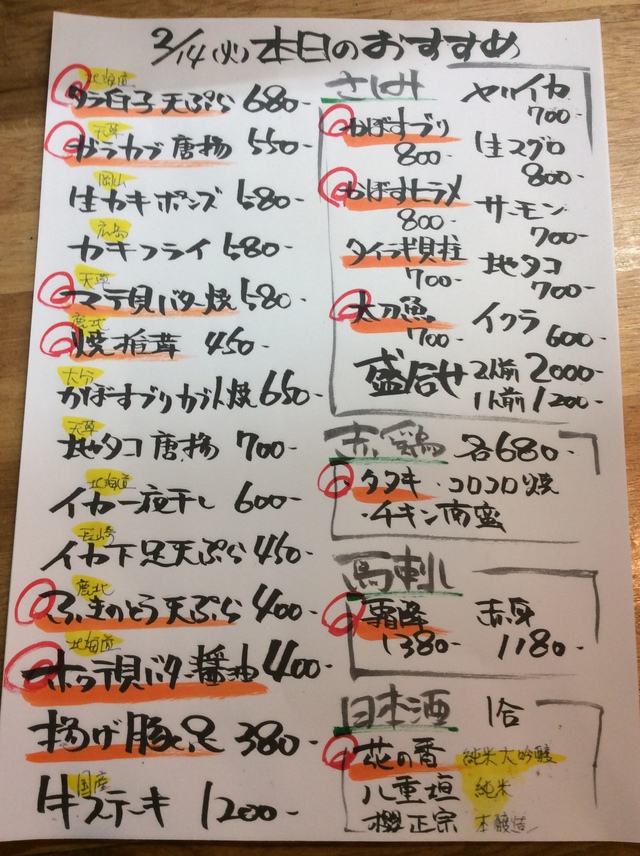 3/14(火)本日のおすすめ
北海道
タラ白子天ぷら 680-
天草
ガラカブ唐揚 550-
岡山
生カキポンズ 580-
広島
カキフライ 580-
天草
マテ貝バター焼 580-
鹿北
焼椎茸 450-
大分
かぼすブリカブト焼 650-
天草
地タコ唐揚 700-
北海道
イカ一夜干し 600-
長崎
イカ下足天ぷら 450-
鹿北
ふきのとう天ぷら 400-
北海道
ホタテ貝バター醤油 400-
揚げ豚足 380-
国産
牛ステーキ 1200-
さしみ
かぼすブリ
800-
かぼすヒラメ
800-
タイラギ貝柱
700-
太刀魚
700-
ヤリイカ
700-
生マグロ
800-
サーモン
700-
地タコ
700-
イクラ
600-
盛合せ 2人前 2000-
1人前 1200-
赤鶏 各680-
タタキ・コロコロ焼
・チキン南蛮
馬刺し
霜降
1380-
赤身
1180-
日本酒 1合
花の香 純米大吟醸
八重垣 純米
櫻正宗 本醸造